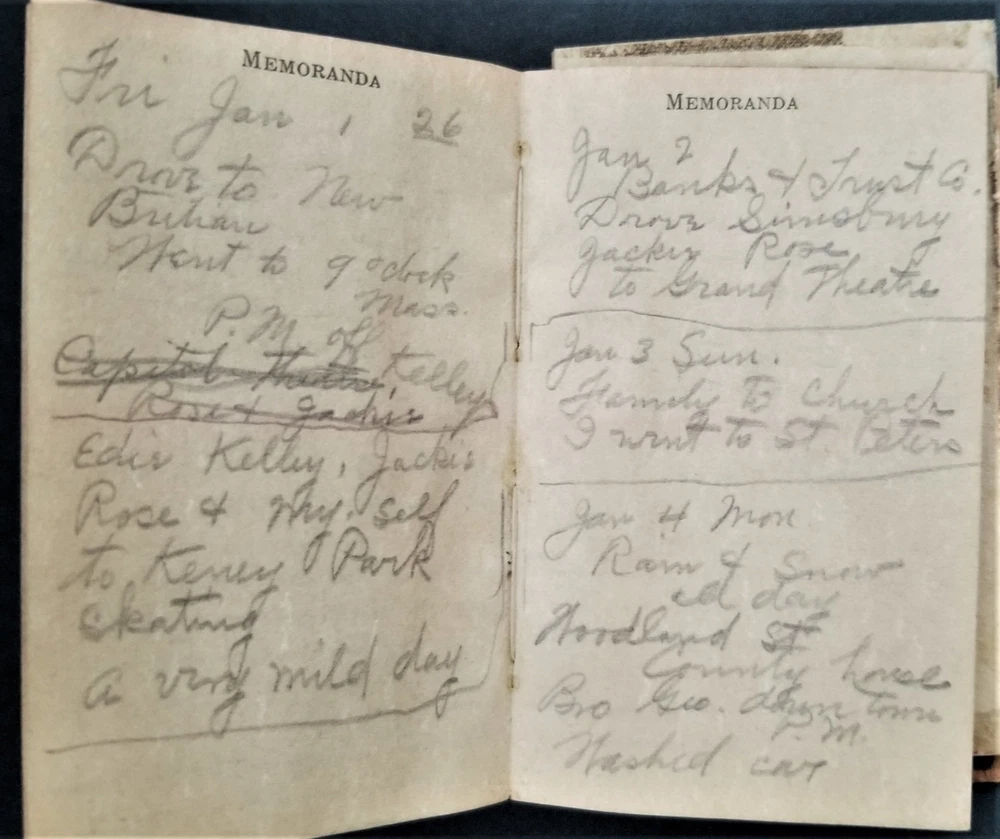 MEMORANDA
Fri Jan 1 26
Drove to New
Britian
Went to 9 oclock
Mass.
P.M.
Capitol Theatre Kelley
Rose & Jackie
Edie Kelley, Jackie
Rose & My self
to Keney Park
skating
a very mild day
MEMORANDA
Jan 2
Banks & Trust Co.
Drove Simsbury
Jackie Rose
to Grand Theatre
Jan 3 Sun.
Family to Church
I went to St. Peters
Jan 4 Mon
Rain & Snow
all day
Woodland St
County house
Bro Geo. down town
P.M.
Washed car